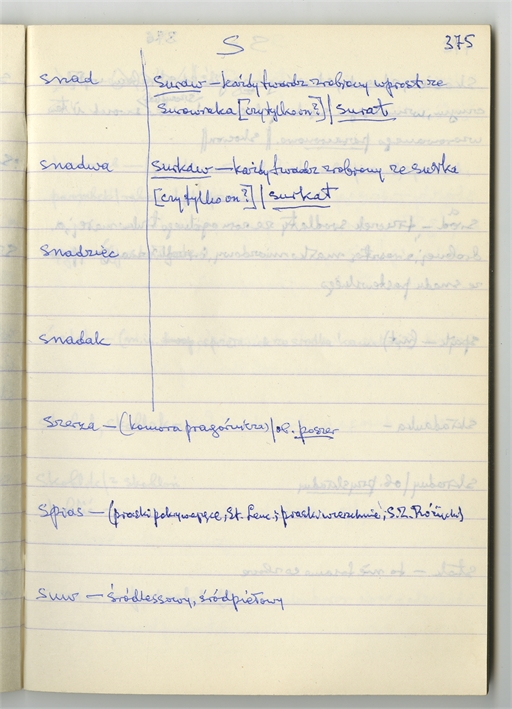 S
375
snad
suraw – każdy twardz zrobiony wprost ze
surowiaka [czy tylko on?] | surat
snadwa
surkaw – każdy twardz zrobiony ze surka
[czy tylko on?] | surkat
snadziec
snadak
szerza – (komora pragórnicza) | ob. poszer
spias – (piaski pokrywające, St. Lenc.; piaski wierzchnie, S.Z. Różycki)
suw – śródlessowy, śródpiętowy